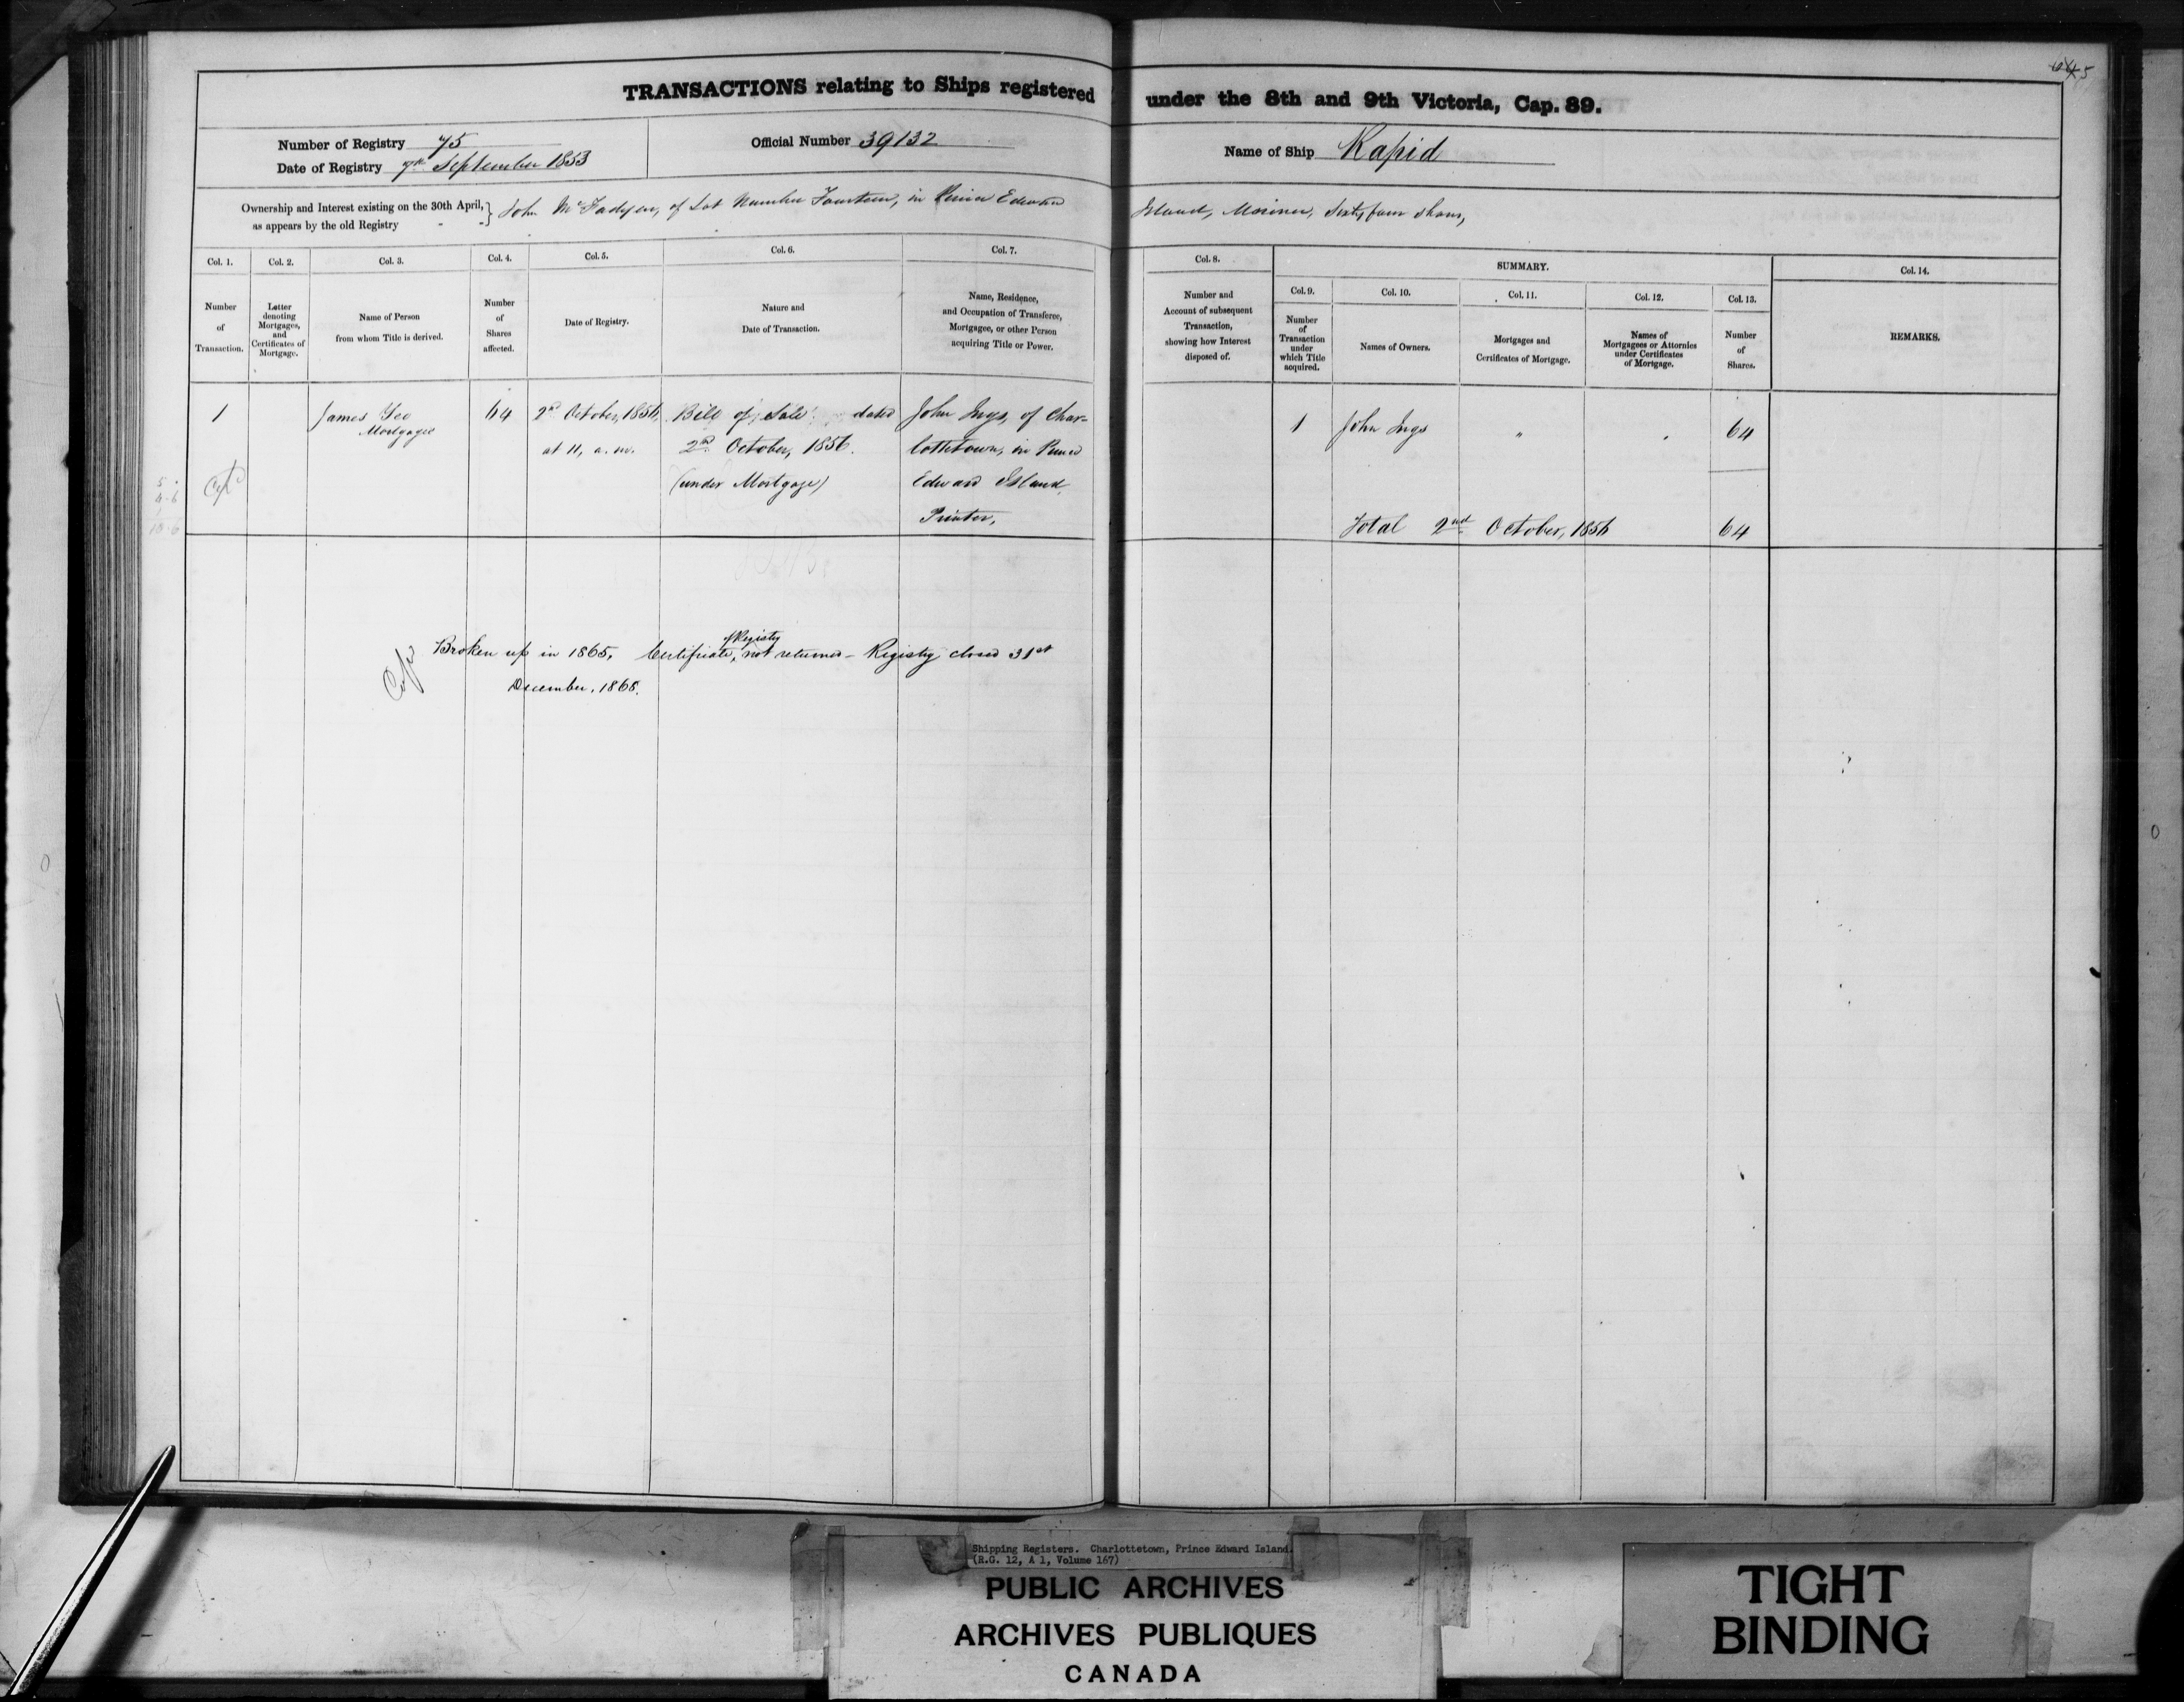 TRANSACTIONS relating to Ships registered under the 8th and 9th Victoria, Cap. 89.
Number of Registry 75
Date of Registry 7th September 1853
Official Number 39132
Name of Ship Rapid
Ownership and Interest existing on the 30th April, as appears by the old Registry } John McFadyen, of Lot Number Fourteen, in Prince Edward Island, Mariner, Sixty four shares,
Col. 1. Number of Transaction.
Col. 2. Letter denoting Mortgages, and Certificates of Mortgage.
Col. 3. Name of Person from whom Title is derived.
Col. 4. Number of Shares affected.
Col. 5. Date of Registry.
Col. 6. Nature and Date of Transaction.
Col. 7. Name, Residence, and Occupation of Transferee, Mortgagee, or other Person acquiring Title or Power.
Col. 8. Number and Account of subsequent Transaction, showing how Interest disposed of.
SUMMARY.
Col. 9. Number of Transaction under which Title acquired.
Col. 10. Names of Owners.
Col. 11. Mortgages and Certificates of Mortgage.
Col. 12. Names of Mortgagees or Attornies under Certificates of Mortgage.
Col. 13. Number of Shares.
Col. 14. REMARKS.
1
James Yeo
Mortgagee
64
2nd October, 1856,
at 11, a.m.
Bill of Sale dated
2nd October, 1856.
(under Mortgage)
John Ings, of Char-
lottetown, in Prince
Edward Island,
Printer,
1 John Ings " 64
Total 2nd October, 1856 64
5
4-6
1
10-6
of Registry
Broken up in 1865, Certificate, not returned – Registry closed 31st
December, 1865.
Shipping Registers. Charlottetown, Prince Edward Island.
(R.G. 12, A 1, Volume 167)
PUBLIC ARCHIVES
ARCHIVES PUBLIQUES
CANADA
TIGHT
BINDING